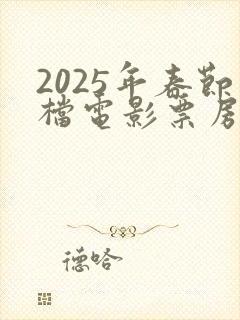 2025年春節
檔電影票房
德哈